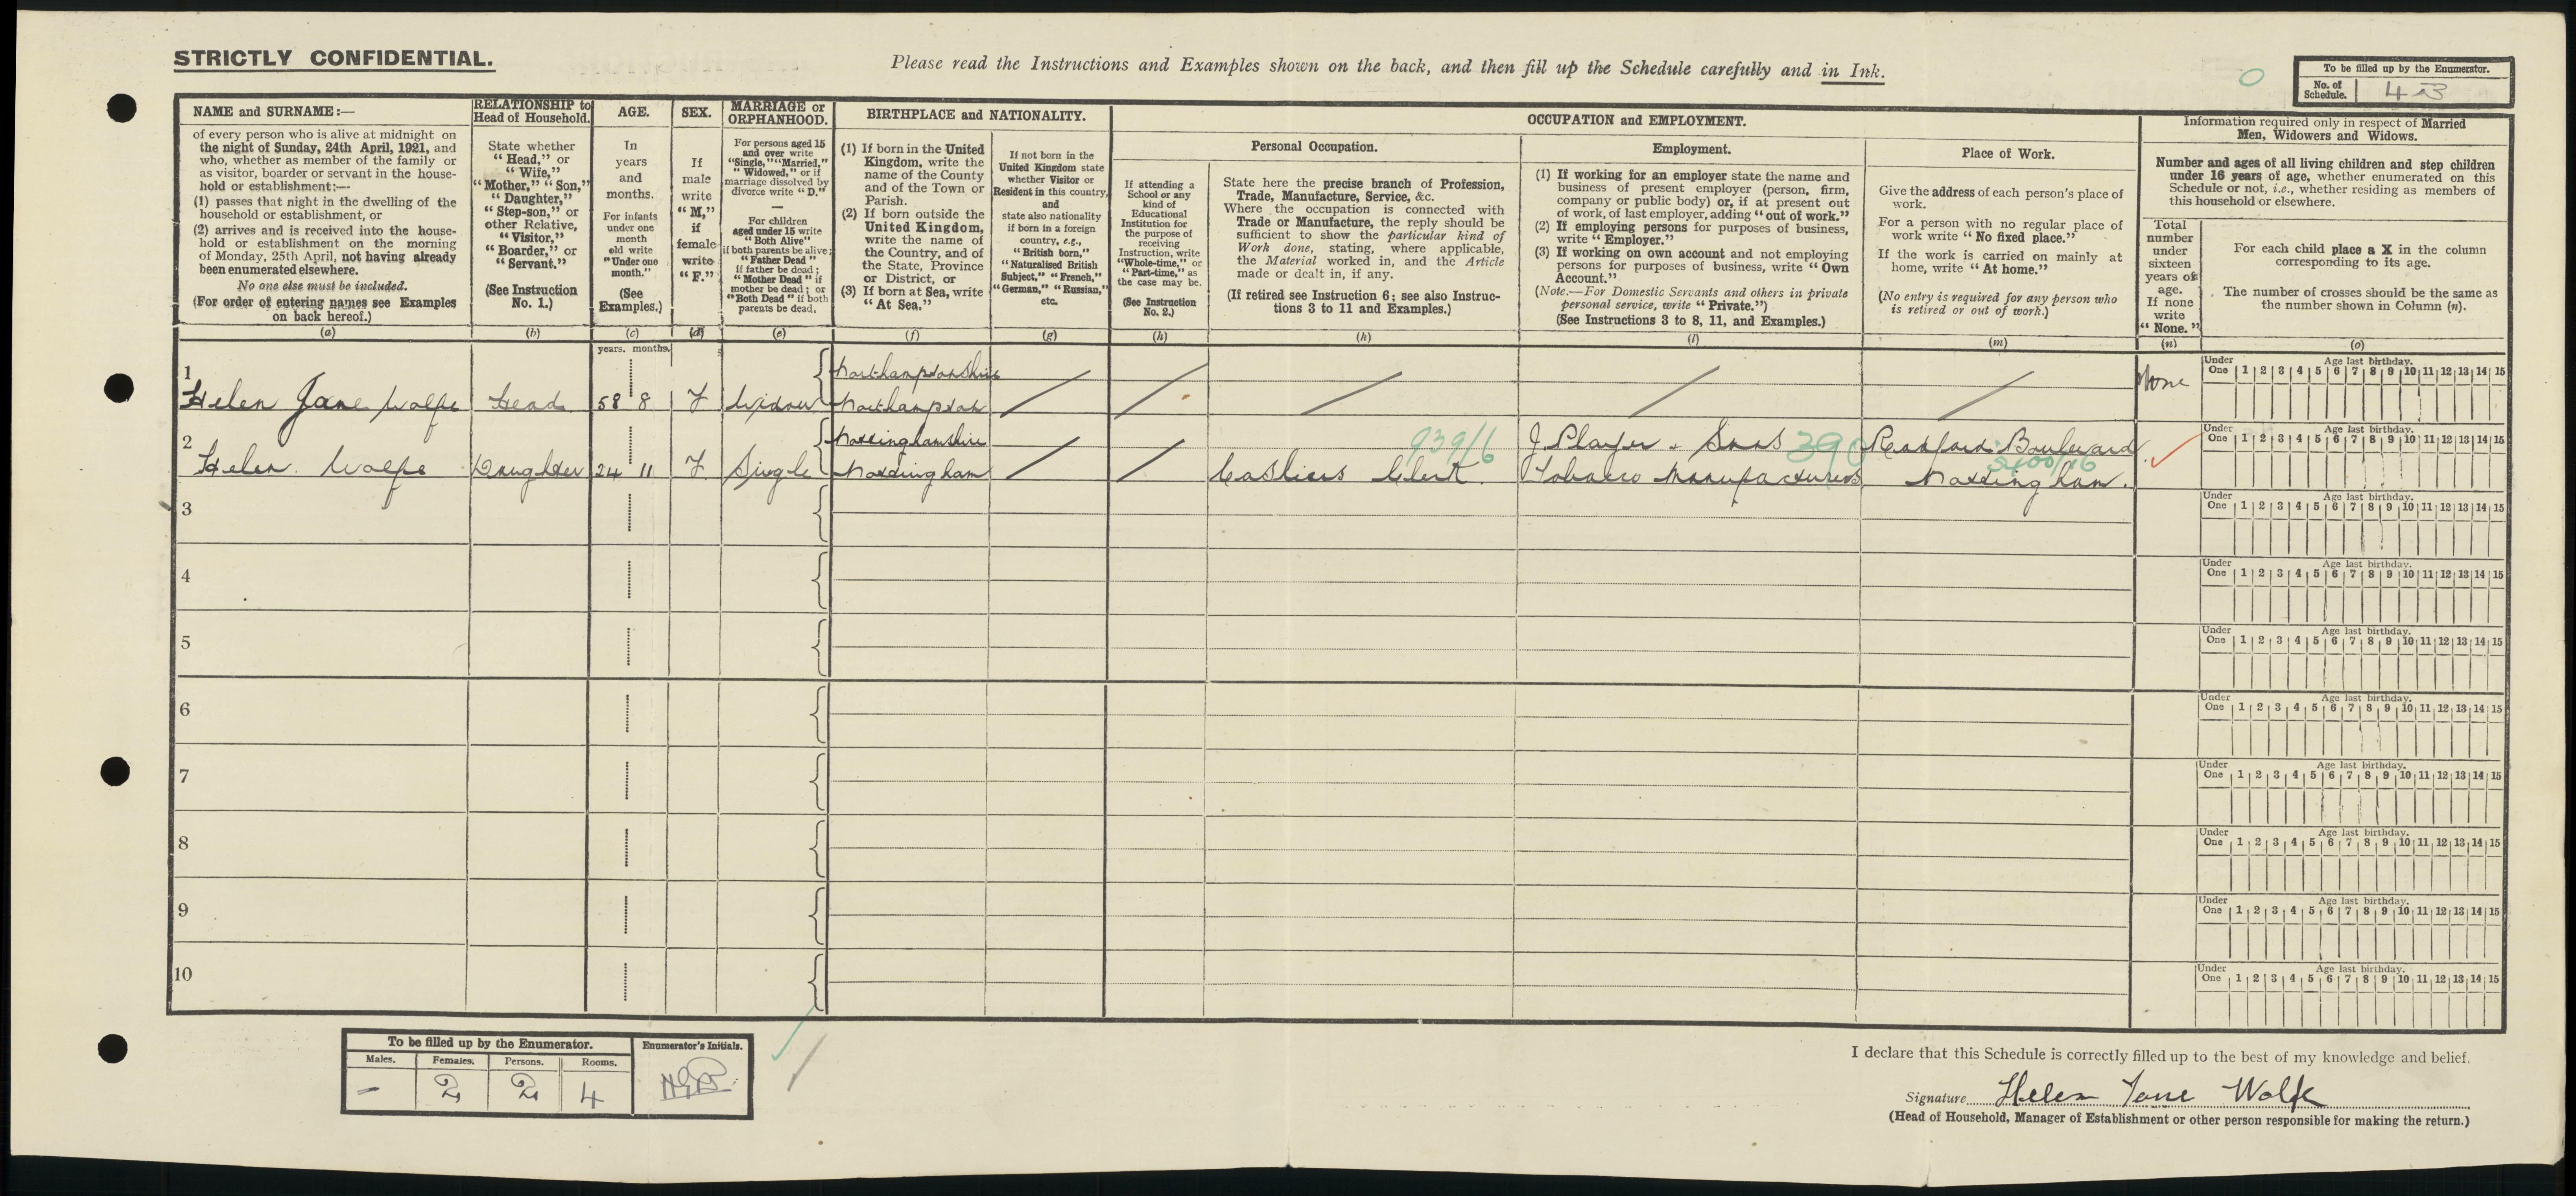 STRICTLY CONFIDENTIAL.
Please read the Instructions and Examples shown on the back, and then fill up the Schedule carefully and in Ink.
To be filled up by the Enumerator.
No. of Schedule. 43
NAME and SURNAME:—
of every person who is alive at midnight on
the night of Sunday, 24th April, 1921, and
who, whether as member of the family or
as visitor, boarder or servant in the house-
hold or establishment:—
(1) passes that night in the dwelling of the
household or establishment, or
(2) arrives and is received into the house-
hold or establishment on the morning
of Monday, 25th April, not having already
been enumerated elsewhere.
No one else must be included.
(For order of entering names see Examples
on back hereof.)
(a)
RELATIONSHIP to
Head of Household.
State whether
"Head," or
"Wife,"
"Mother," "Son,"
"Daughter,"
"Step-son," or
other Relative,
"Visitor,"
"Boarder," or
"Servant."
(See Instruction
No. 1.)
(b)
AGE.
In
years
and
months.
For infants
under one
month
old write
"Under one
month."
(See
Examples.)
(c)
SEX.
If
male
write
"M,"
if
female
write
"F."
(d)
MARRIAGE or
ORPHANHOOD.
For persons aged 15
and over write
"Single," "Married,"
"Widowed," or if
marriage dissolved by
divorce write "D."
—
For children
aged under 15 write
"Both Alive"
if both parents be alive;
"Father Dead"
if father be dead;
"Mother Dead" if
mother be dead; or
"Both Dead" if both
parents be dead.
(e)
BIRTHPLACE and NATIONALITY.
(1) If born in the United
Kingdom, write the
name of the County
and of the Town or
Parish.
(2) If born outside the
United Kingdom,
write the name of
the Country, and of
the State, Province
or District, or
(3) If born at Sea, write
"At Sea."
(f)
If not born in the
United Kingdom state
whether Visitor or
Resident in this country,
and
state also nationality
if born in a foreign
country, e.g.,
"British born,"
"Naturalised British
Subject," "French,"
"German," "Russian,"
etc.
(g)
OCCUPATION and EMPLOYMENT.
If attending a
School or any
kind of
Educational
Institution for
the purpose of
receiving
Instruction, write
"Whole-time," or
"Part-time," as
the case may be.
(See Instruction
No. 2.)
(h)
Personal Occupation.
State here the precise branch of Profession,
Trade, Manufacture, Service, &c.
Where the occupation is connected with
Trade or Manufacture, the reply should be
sufficient to show the particular kind of
Work done, stating, where applicable,
the Material worked in, and the Article
made or dealt in, if any.
(If retired see Instruction 6; see also Instruc-
tions 3 to 11 and Examples.)
(k)
Employment.
(1) If working for an employer state the name and
business of present employer (person, firm,
company or public body) or, if at present out
of work, of last employer, adding "out of work."
(2) If employing persons for purposes of business,
write "Employer."
(3) If working on own account and not employing
persons for purposes of business, write "Own
Account."
(Note.—For Domestic Servants and others in private
personal service, write "Private.")
(See Instructions 3 to 8, 11, and Examples.)
(l)
Place of Work.
Give the address of each person's place of
work.
For a person with no regular place of
work write "No fixed place."
If the work is carried on mainly at
home, write "At home."
(No entry is required for any person who
is retired or out of work.)
(m)
Information required only in respect of Married
Men, Widowers and Widows.
Number and ages of all living children and step children
under 16 years of age, whether enumerated on this
Schedule or not, i.e., whether residing as members of
this household or elsewhere.
Total
number
under
sixteen
years of
age.
If none
write
"None."
(n)
For each child place a X in the column
corresponding to its age.
The number of crosses should be the same as
the number shown in Column (n).
(o)
years. months.
1 Helen Jane Wolfe Head 58 8 F Widow Northamptonshire Northampton None
Under One Age last birthday. 1 2 3 4 5 6 7 8 9 10 11 12 13 14 15
2 Helen. Wolfe Daughter 24 11 F Single Nottinghamshire Nottingham Cashiers Clerk. 939/6 J. Player & Sons Tobacco Manufacturers 390 Radford Boulevard. Nottingham.
Under One Age last birthday. 1 2 3 4 5 6 7 8 9 10 11 12 13 14 15
3
Under One Age last birthday. 1 2 3 4 5 6 7 8 9 10 11 12 13 14 15
4
Under One Age last birthday. 1 2 3 4 5 6 7 8 9 10 11 12 13 14 15
5
Under One Age last birthday. 1 2 3 4 5 6 7 8 9 10 11 12 13 14 15
6
Under One Age last birthday. 1 2 3 4 5 6 7 8 9 10 11 12 13 14 15
7
Under One Age last birthday. 1 2 3 4 5 6 7 8 9 10 11 12 13 14 15
8
Under One Age last birthday. 1 2 3 4 5 6 7 8 9 10 11 12 13 14 15
9
Under One Age last birthday. 1 2 3 4 5 6 7 8 9 10 11 12 13 14 15
10
Under One Age last birthday. 1 2 3 4 5 6 7 8 9 10 11 12 13 14 15
To be filled up by the Enumerator.
Males. Females. Persons. Rooms.
– 2 2 4
Enumerator's Initials.
I declare that this Schedule is correctly filled up to the best of my knowledge and belief.
Signature Helen Jane Wolfe
(Head of Household, Manager of Establishment or other person responsible for making the return.)